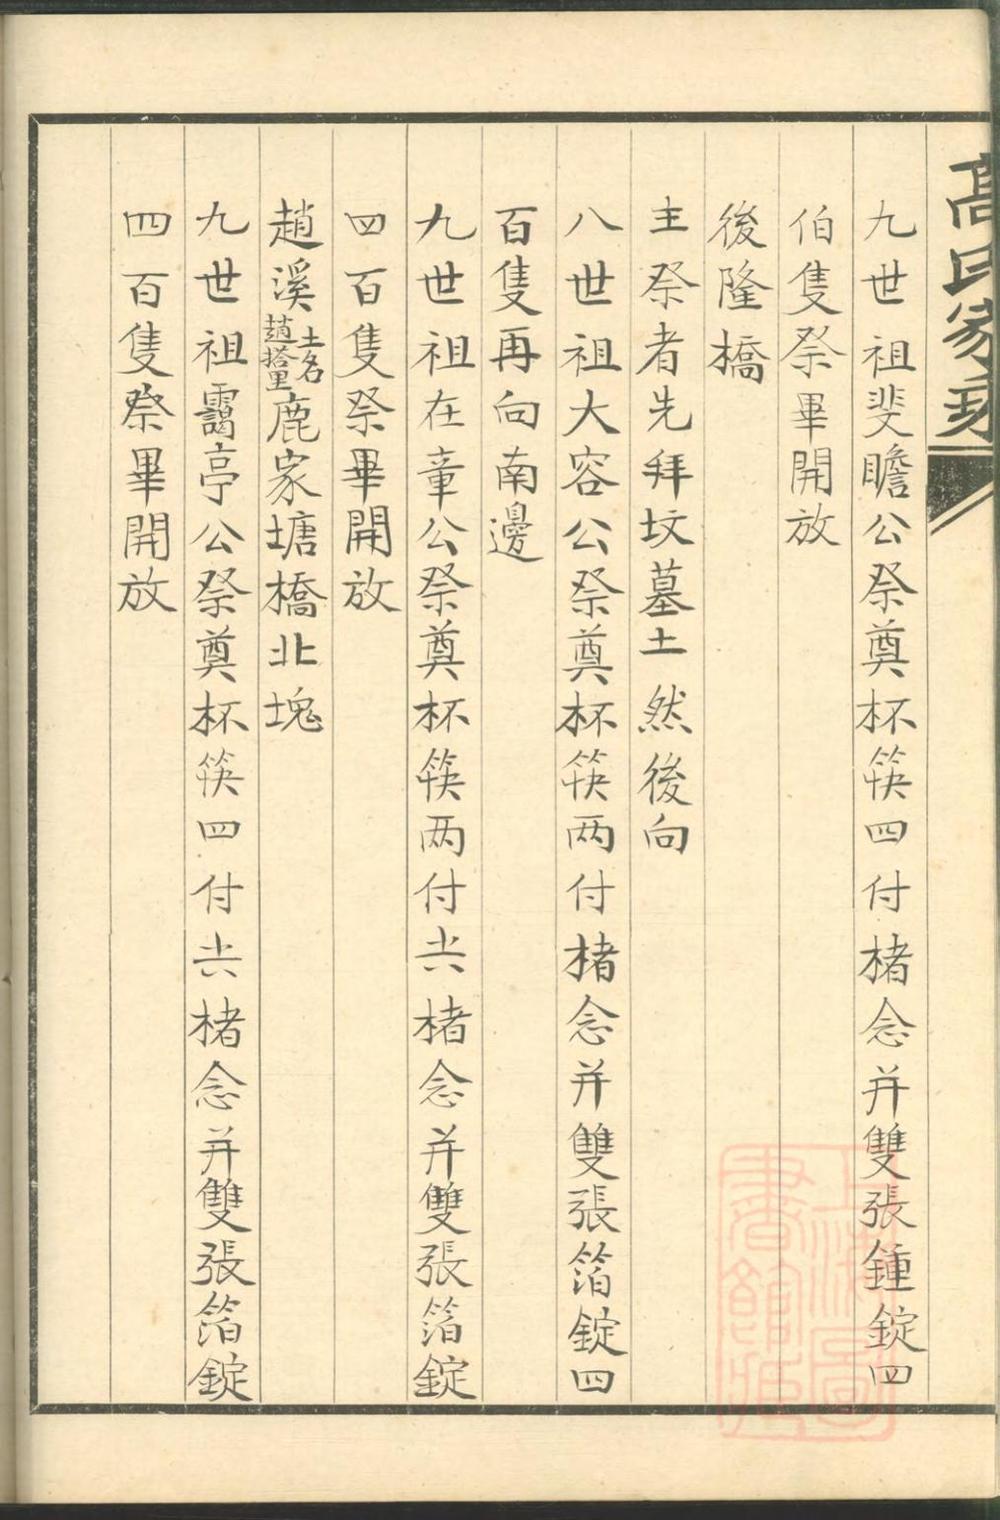 高氏家錄
九世祖斐瞻公祭奠杯筷四付楮念并雙張錘錠四
伯隻祭畢開放
後隆橋
主祭者先拜坟墓土然後向
八世祖大容公祭奠杯筷两付楮念并雙張箔錠四
百隻再向南邊
九世祖在章公祭奠杯筷两付共楮念并雙張箔錠
四百隻祭畢開放
趙溪土名趙搭里鹿家塘橋北塊
九世祖靄亭公祭奠杯筷四付共楮念并雙張箔錠
四百隻祭畢開放
上海圖書館藏